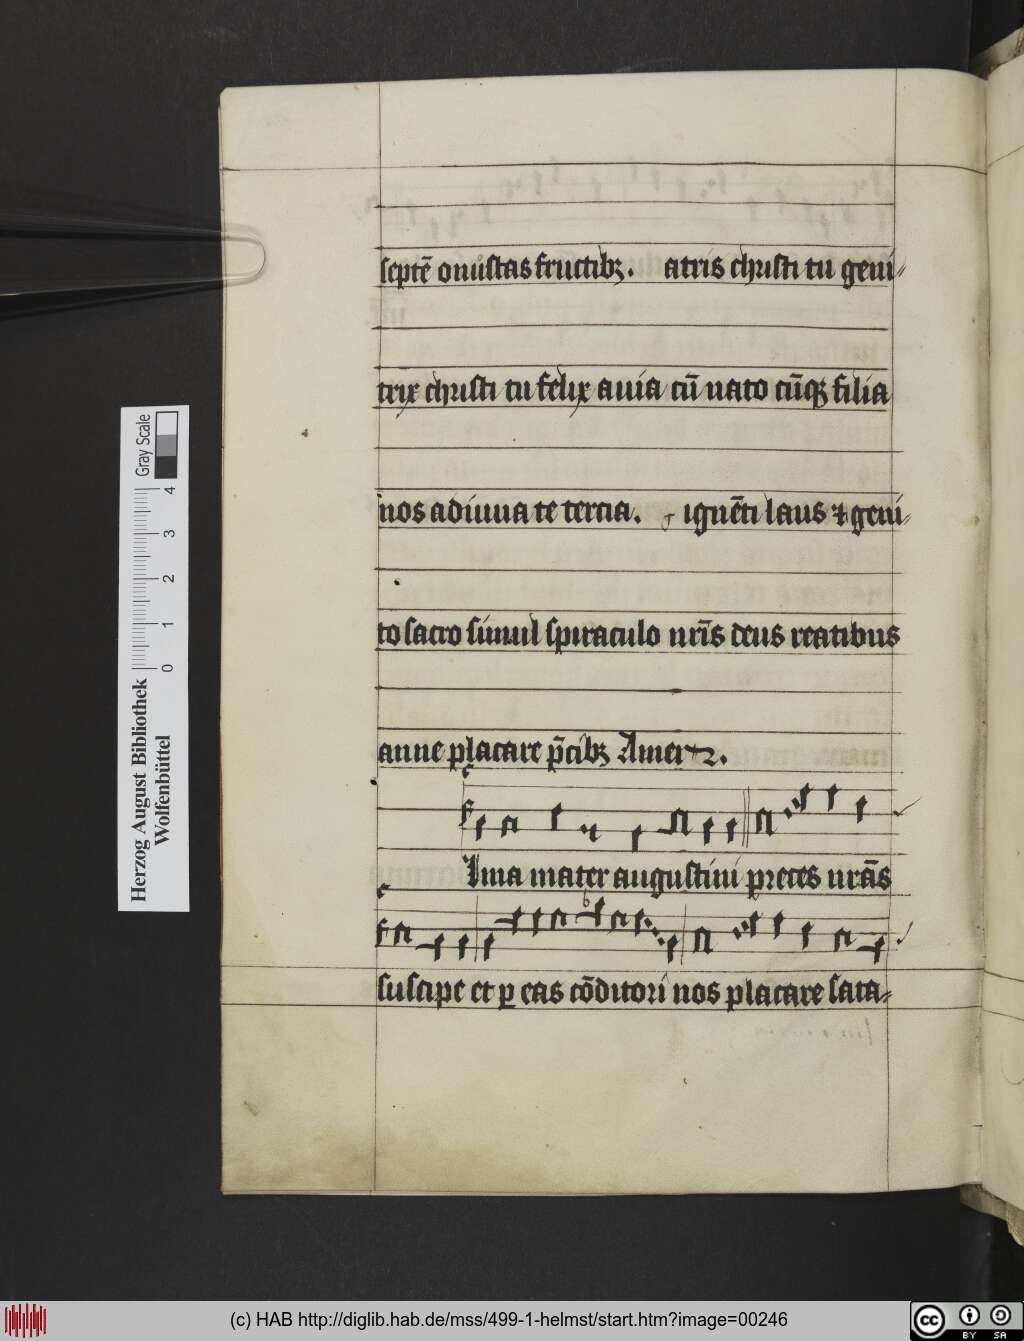 septē onustas fructibꝫ. atris christi tu geni⸗
trix christi tu felix auia cū nato cūqꝫ filia
nos adiuua te tercia. ignēti laus ⁊ geni⸗
to sacro simul spiraculo nrīs deus reatibus
anne placare p̄cibꝫ Amen.
lma mater augustini preces nrās
suscipe et ꝑ eas cōditori nos placare sata⸗
Herzog August Bibliothek
Wolfenbüttel
0 1 2 3 4
Gray Scale
(c) HAB http://diglib.hab.de/mss/499-1-helmst/start.htm?image=00246
cc BY SA